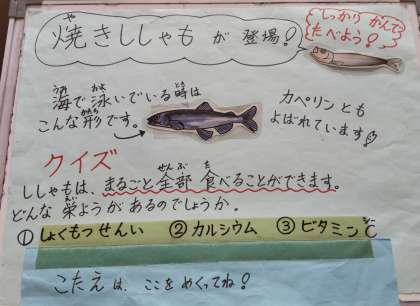 焼きししゃも が 登場!
しっかり かんで
たべよう!
海で泳いでいる時は
こんな形です。
カペリンとも
よばれています
クイズ
ししゃもは、まるごと全部 食べることができます。
どんな 栄ようがあるのでしょうか。
① しょくもつせんい ② カルシウム ③ ビタミンC
こたえは、ここをめくってね!